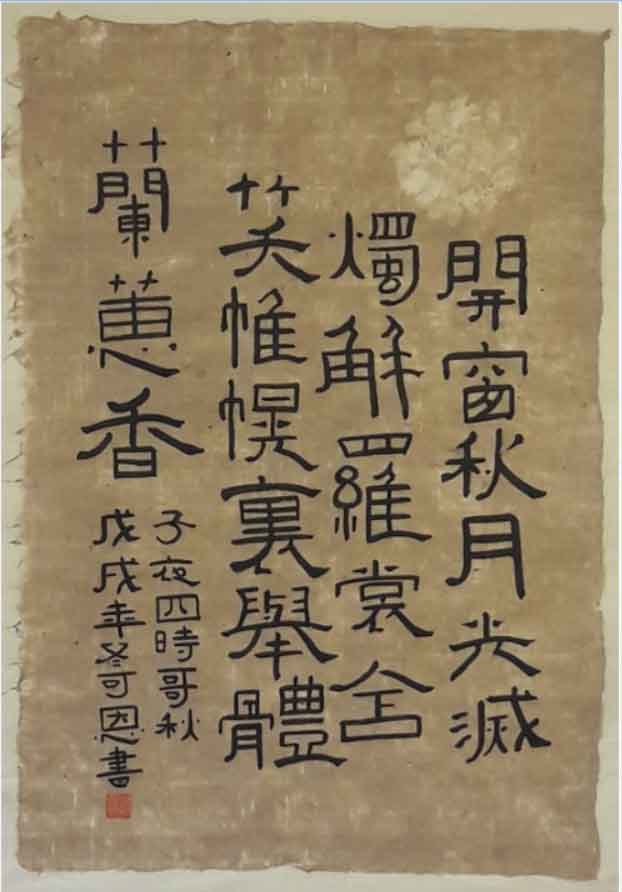 開窗秋月光滅
燭解羅裳含
笑帷幌裏舉體
蘭蕙香
子夜四時哥秋
戊戌年冬可恩書